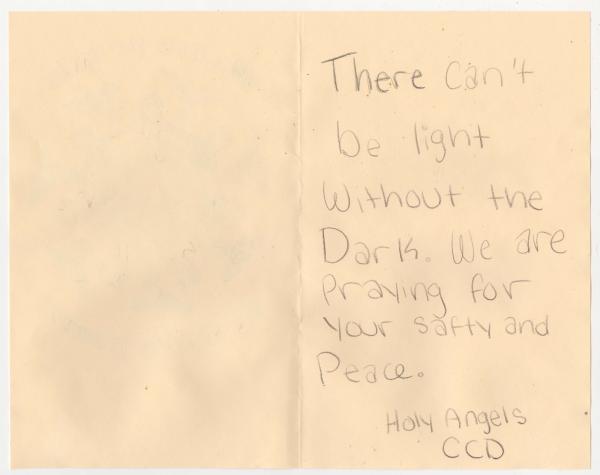 There can't
be light
Without the
Dark. We are
Praying for
your safty and
Peace.
Holy Angels
CCD